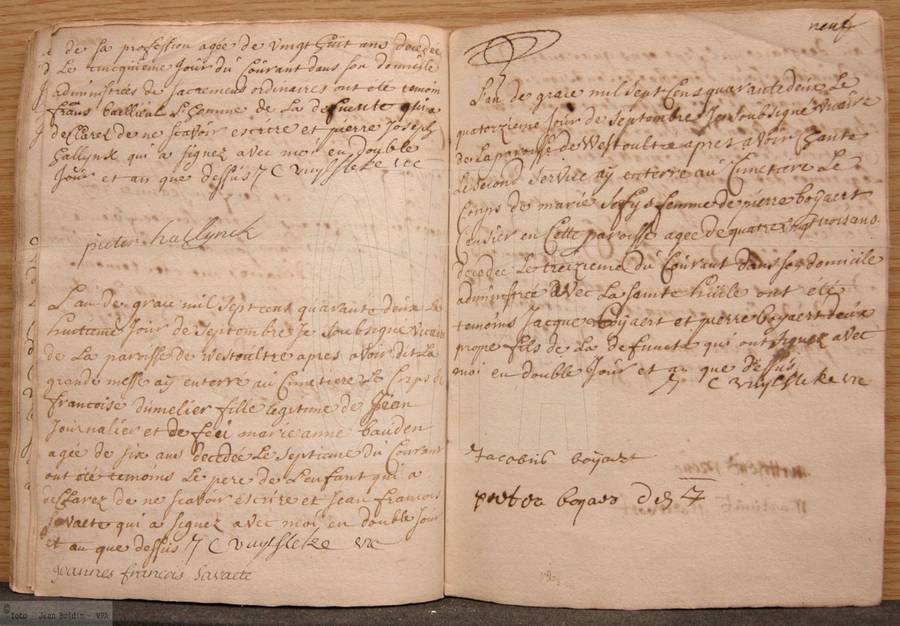 de sa profession agée de vingt huit ans decedee
Le cincquieme Jour du Courant dans son domicile
administrées de sacremens ordinaires ont ete temoin
frans bailliul L'homme de La defuncte qui a
declarez de ne scavoir escrire et pierre Joseph
hallynck qui a signez avec moi en double
Jour et an que dessus J C vuylsteke vic
pieter hallynck
L'an de grace mil sept cent quarante deux Le
huitieme Jour de septembre Je soubsigné vicaire
de La paroisse de Westoultre apres avoir dit La
grande messe aÿ enterre au Cimetiere Le Corps de
francoise dumelier fille legitime de Jean
Journalier et de feü marie anne bauden
agée de six ans decedée Le septieme du Courant
ont été temoins Le pere de L'enfant qui a
declarez de ne scavoir escrire et Jean francois
savaete qui a signez avec moi en double Jour
et an que dessus J C vuylsteke vic
Joannes francois Savaete
neuf
L'an de grace mil sept Cens quarante deux Le
quatorzieme Jour de septembre Je soubsigné vicaire
de La paroisse de Westoultre apres avoir Chante
Le second service aÿ enterré au Cimetiere Le
Corps de marie femme de pierre boÿaert
Censier en Cette paroisse agée de quatre vingt trois ans
decedée Le treizieme du Courant dans son domicile
administrée avec La sainte huile ont eté
temoins Jacque boÿaert et pierre boyaert deux
propre fils de La defuncte qui ont signez avec
moi en double Jour et an que dessus
J C vuylsteke vic
Jacobus boÿaert
pieter boyaer
© foto - Jean Boidin - VPA